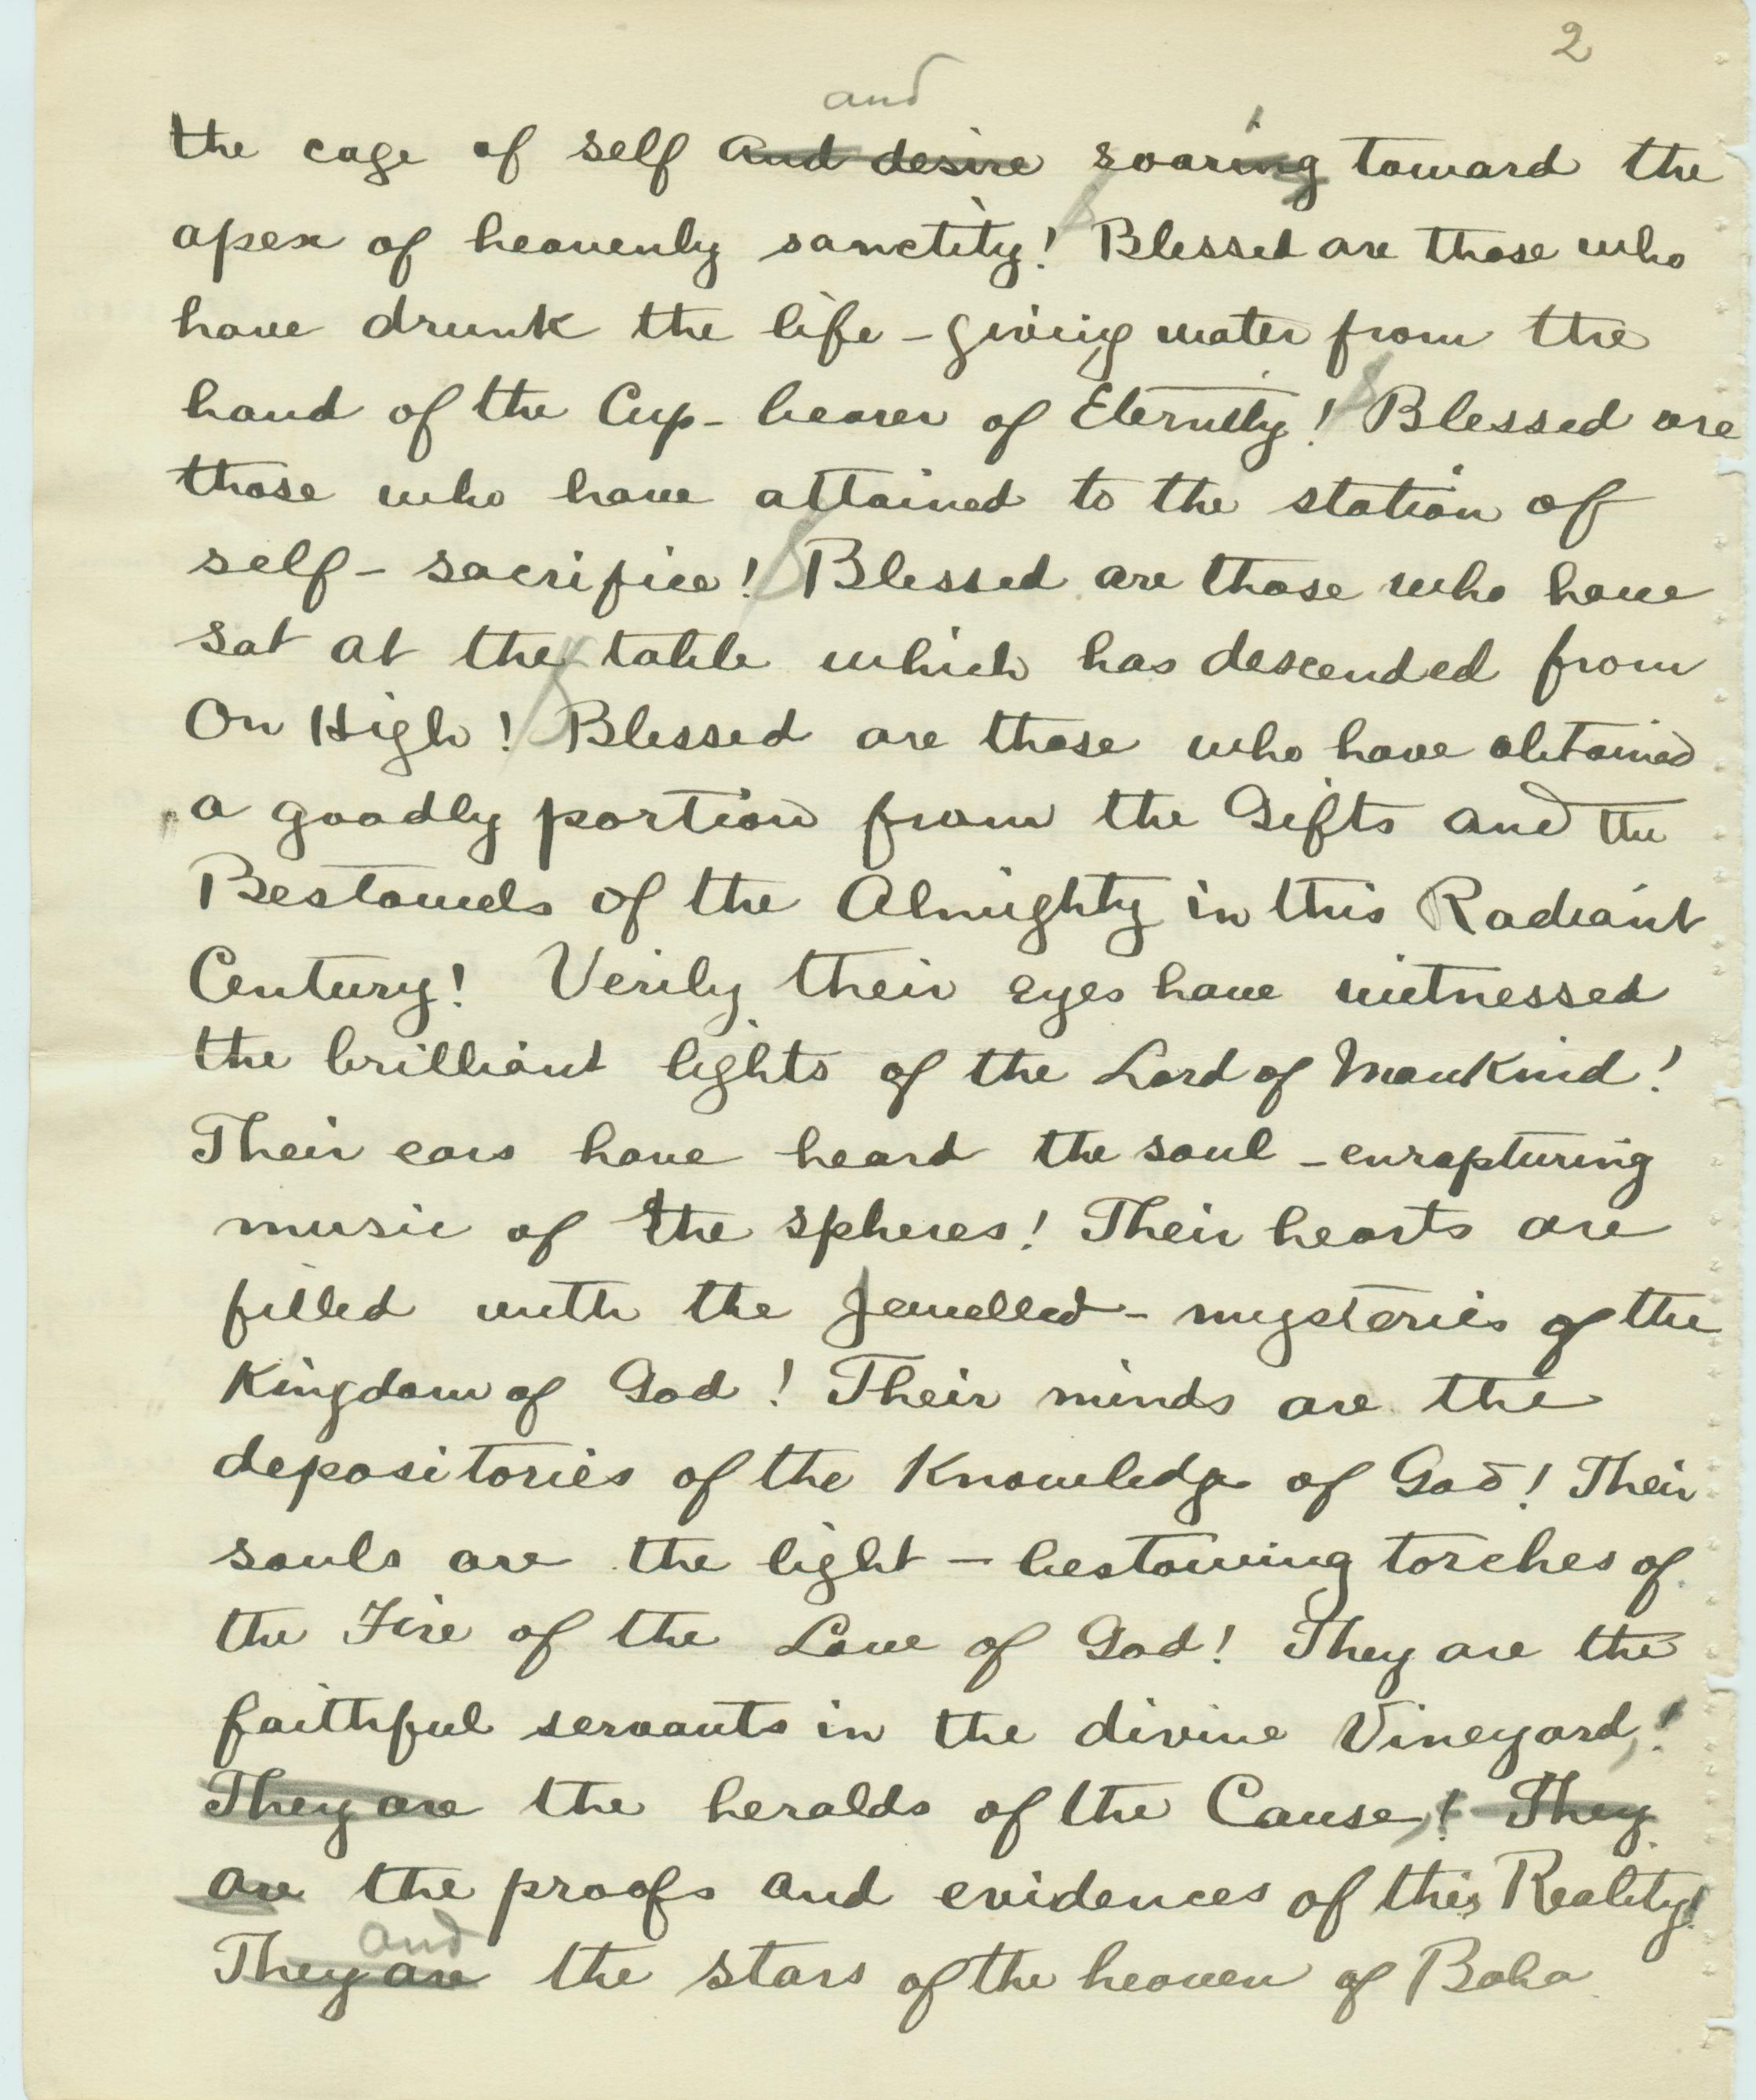 2
and
the cage of self and desire soaring toward the
apex of heavenly sanctity! Blessed are those who
have drunk the life-giving water from the
hand of the Cup-bearer of Eternity! Blessed are
those who have attained to the station of
self-sacrifice! Blessed are those who have
sat at the table which has descended from
On High! Blessed are those who have obtained
a goodly portion from the Gifts and the
Bestowels of the Almighty in this Radiant
Century! Verily their eyes have witnessed
the brilliant lights of the Lord of Mankind!
Their ears have heard the soul-enrapturing
music of the spheres! Their hearts are
filled with the Jewelled-mysteries of the
Kingdom of God! Their minds are the
depositories of the Knowledge of God! Their
souls are the light-bestowing torches of
the Fire of the Love of God! They are the
faithful servants in the divine Vineyard,!
They are the heralds of the Cause,! They
are the proofs and evidences of this Reality!
and
They are the stars of the heaven of Baha